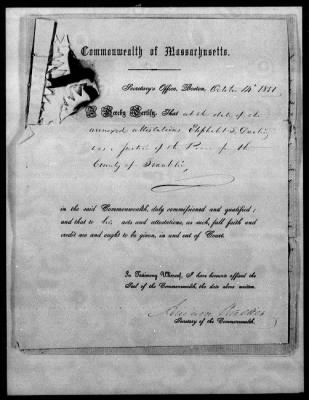 Commonwealth of Massachusetts.
Secretary's Office, Boston, October 14th 1851
I Hereby Certify, That at the date of the
annexed attestations Eliphalet S. Darling
was a Justice of the Peace for the
County of Franklin
in the said Commonwealth, duly commissioned and qualified;
and that to his acts and attestations, as such, full faith and
credit are and ought to be given, in and out of Court.
In Testimony Whereof, I have hereunto affixed the
Seal of the Commonwealth, the date above written.
Amasa Walker
Secretary of the Commonwealth.